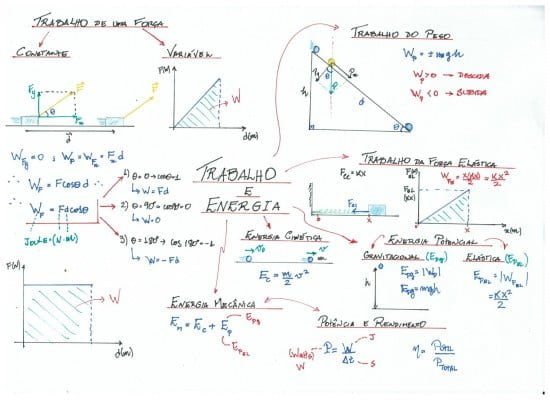 TRABALHO DE UMA FORÇA
CONSTANTE
VARIÁVEL
F(N)
W
d(m)
Fy
F
θ
Fx
F
d
W_Fy = 0 ; W_F = W_Fx = Fx d
∴ W_F = F cosθ d
∴ W_F = F d cosθ
JOULE = (N·m)
1) θ = 0 → cosθ = 1
↳ W = Fd
2) θ = 90° → cos90° = 0
↳ W = 0
3) θ = 180° → cos 180° = -1
↳ W = -Fd
F(N)
W
d(m)
TRABALHO
E
ENERGIA
TRABALHO DO PESO
h
θ
P
d
θ
W_P = ± mgh
W_P > 0 → DESCIDA
W_P < 0 → SUBIDA
TRABALHO DA FORÇA ELÁSTICA
F_EL = KX
F_EL
x
F_EL
F_EL
(KX)
x
x(m)
W_FEL = x(KX)/2 = KX²/2
ENERGIA CINÉTICA
v₀
v
m
E_c = m/2 v²
ENERGIA POTENCIAL
GRAVITACIONAL (E_PG)
h
E_PG = |W_P|
E_PG = mgh
ELÁSTICA (E_PEL)
E_PEL = |W_FEL|
= KX²/2
ENERGIA MECÂNICA
E_M = E_c + E_P
E_PG
E_PEL
POTÊNCIA E RENDIMENTO
(WATTS)
W
P = W/Δt
J
S
η = P_ÚTIL/P_TOTAL